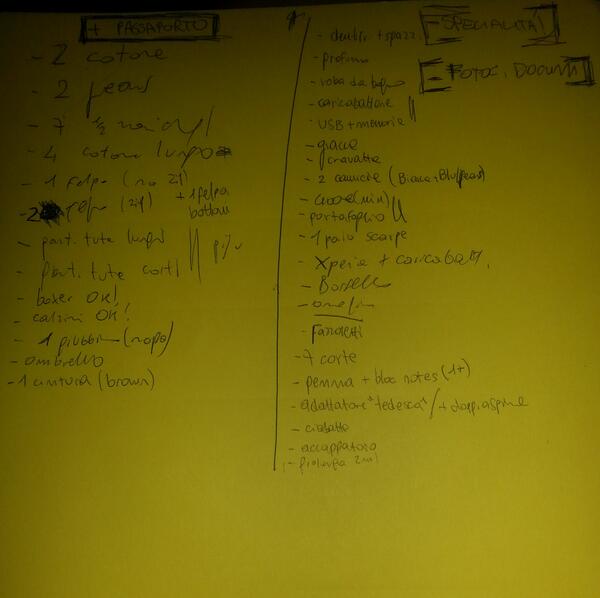 + PASSAPORTO
- 2 cotone
- 2 jeans
- 7 1/2 maniche
- 4 cotone lungo
- 1 felpa (no zip)
- 2 felpe (zip) + 1 felpa
bottoni
- pant. tuta lunghi
- pant. tuta corti
- boxer OK!
- calzini OK!
- 1 giubbino (napo)
- ombrello
- 1 cintura (brown)
- dentifr. + spazz.
- profumo
- roba da bagno
- caricabattone
- USB + memorie
- giacca
- cravatta
- 2 camicie (Bianca + Blu/jeans)
- portafoglio
- 1 paio scarpe
- Xperia + caricabatt.
- Borsello
- Fazzoletti
- 7 carte
- penna + bloc notes (1+)
- adattatore "tedesca" / + doppiaspine
- ciabatte
- accappatoio
- prolunga 2m
- SPECIALITÀ
- FOTOC. DOCUM